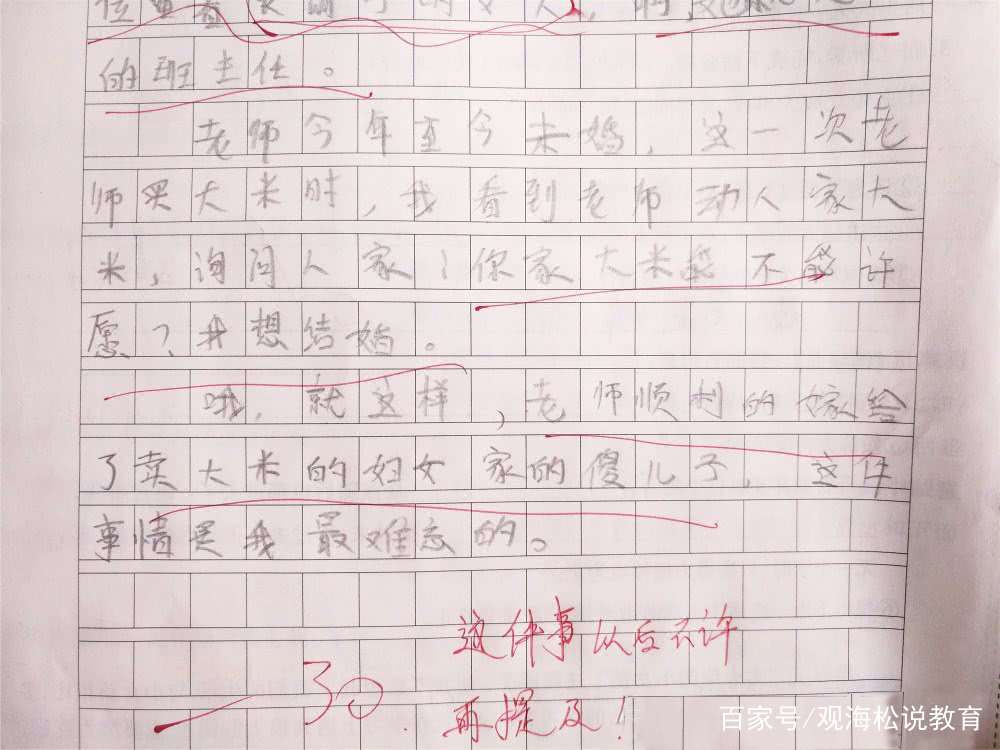 的班主任。
老师今年至今未婚，这一次老
师买大米时，我看到老师动人家大
米，询问人家：你家大米能不能许
愿？我想结婚。
哦，就这样，老师顺利的嫁给
了卖大米的妇女家的傻儿子，这件
事情是我最难忘的。
这件事以后不许
30
再提及！
百家号/观海松说教育